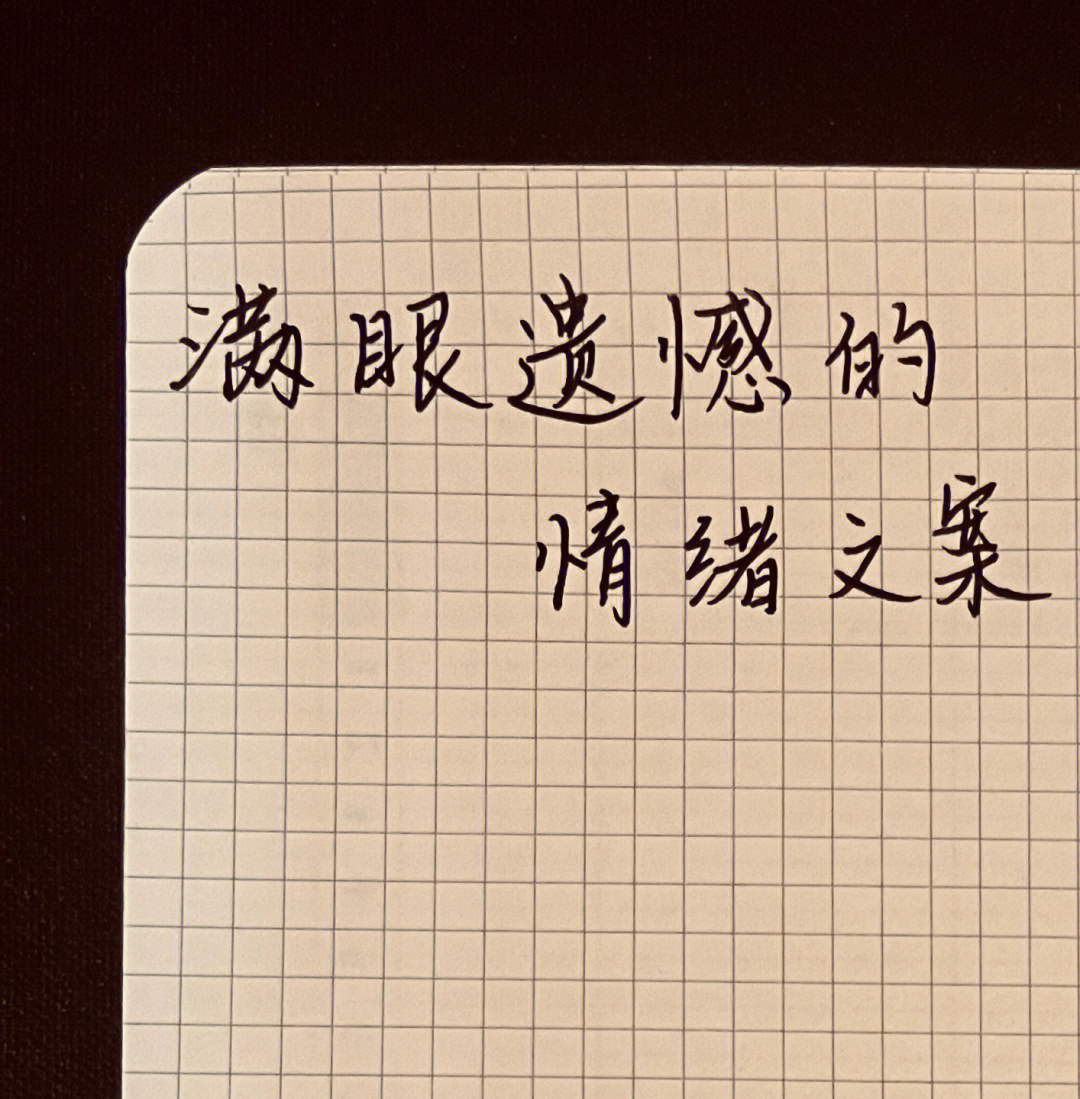 满眼遗憾的
情绪文案